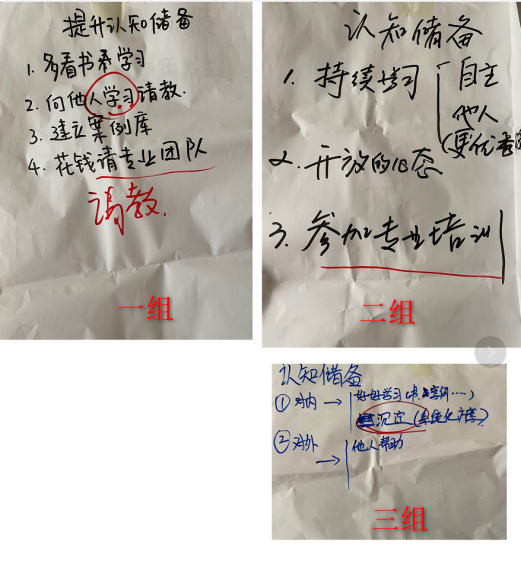 提升认知储备
1. 多看书 学习
2. 向他人学习请教.
3. 建立案例库
4. 花钱请专业团队
请教.
一组
认知储备
1. 持续学习 自主
他人
2. 开放的心态
3. 参加专业培训
二组
认知储备
① 对内 → 好好学习
沉淀
② 对外 → 他人帮助
三组